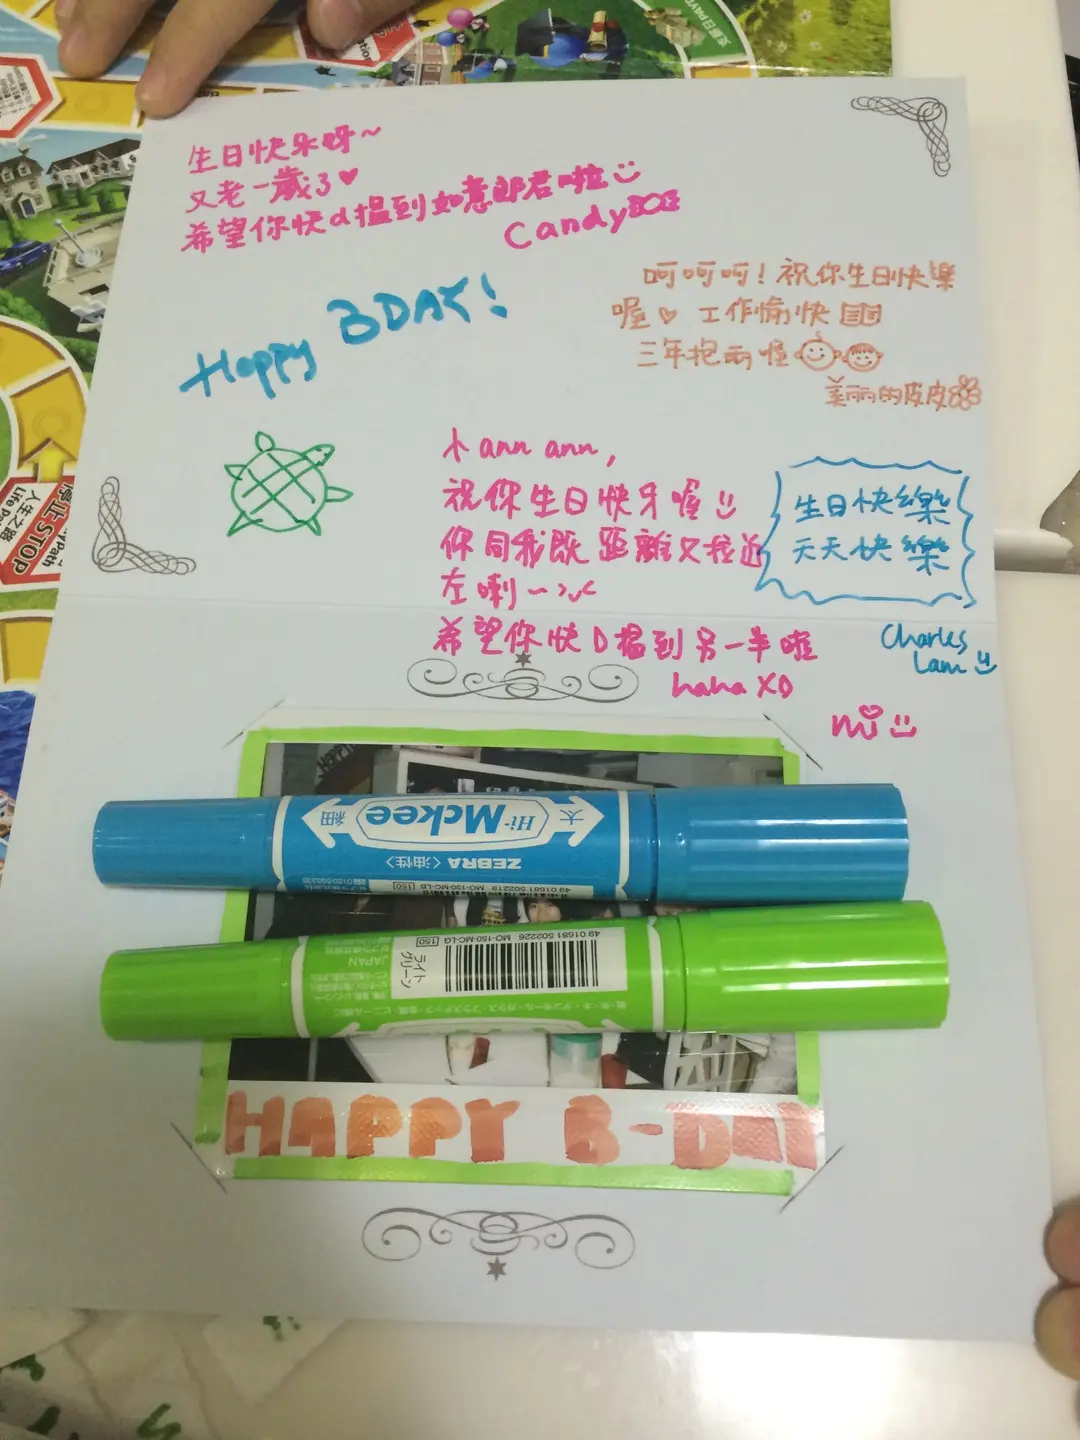 生日快乐呀~
又老一歲了♥
希望你快d搵到如意郎君啦
Candy
Happy BDAY!
呵呵呵！祝你生日快樂
喔♡ 工作愉快
三年抱兩喔
美丽的皮皮
ann ann,
祝你生日快牙喔
你同我既距離又拉近
左喇~
希望你快D搵到另一半啦
haha XD
mi
生日快樂
天天快樂
Charles
Lam
停止 STOP
人生之路
Hi-Mckee
太
細
ZEBRA〈油性〉
49 01681 502219 MO-150-MC-LB 150
49 01681 502226 MO-150-MC-LG 150
ライト
グリーン
JAPAN
HAPPY B-DAY